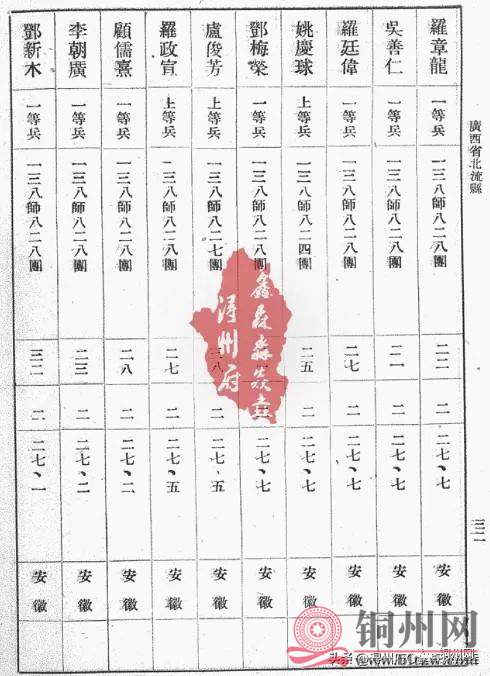 廣西省北流縣
三二
羅章龍 一等兵 一三八師八二八團 二二 二 二七、七 安徽
吳善仁 一等兵 一三八師八二八團 二一 二 二七、七 安徽
羅廷偉 一等兵 一三八師八二八團 二七 二 二七、七 安徽
姚慶球 上等兵 一三八師八二四團 二五 二 二七、七 安徽
鄧梅榮 一等兵 一三八師八二八團 二七、七 安徽
盧俊芳 上等兵 一三八師八二七團 三八 二 二七、五 安徽
羅政宣 上等兵 一三八師八二八團 二七 二 二七、五 安徽
顧儒熹 一等兵 一三八師八二八團 二八 二 二七、二 安徽
李朝廣 一等兵 一三八師八二八團 二三 二 二七、二 安徽
鄧新木 一等兵 一三八師八二八團 三二 二 二七、一 安徽
鑫森淼焱垚
潯州府
铜州网
头条